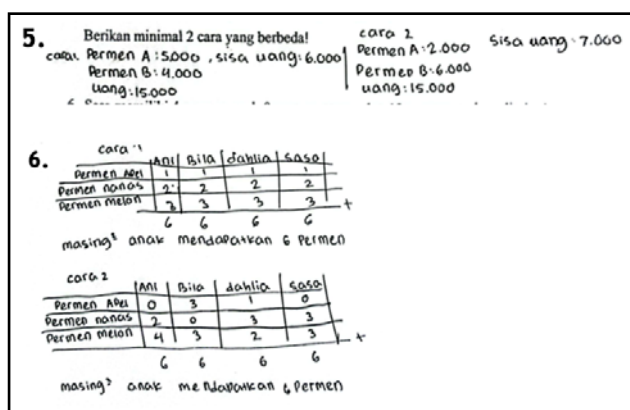 5. Berikan minimal 2 cara yang berbeda!
cara1 Permen A : 5.000 , sisa uang : 6.000
Permen B : 4.000
uang : 15.000
cara 2
Permen A : 2.000 sisa uang : 7.000
Permen B : 6.000
uang : 15.000
6. cara 1
Ani Bila dahlia sasa
Permen Apel 1 1 1 1
Permen nanas 2 2 2 2
Permen melon 3 3 3 3 +
6 6 6 6
masing² anak mendapatkan 6 Permen
cara 2
Ani Bila dahlia sasa
Permen Apel 0 3 1 0
Permen nanas 2 0 3 3
Permen melon 4 3 2 3 +
6 6 6 6
masing² anak mendapatkan 6 Permen